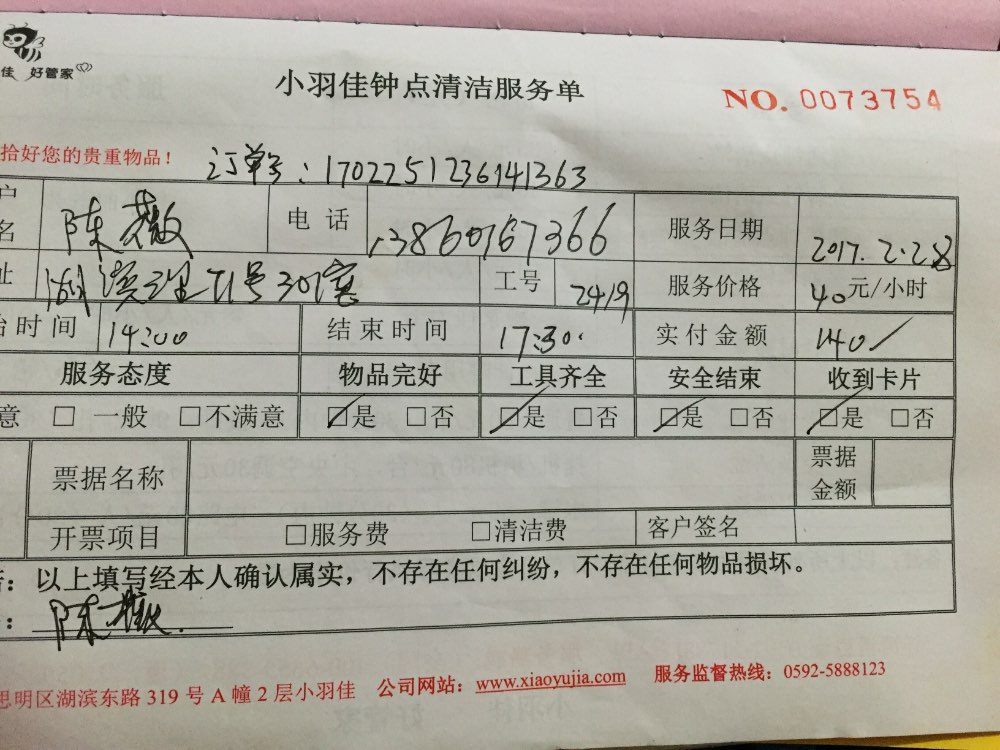 佳 好管家
小羽佳钟点清洁服务单
NO. 0073754
拾好您的贵重物品!
订单号:1702251236141363
户名 陈薇 电话 13860167366 服务日期 2017.2.28
址 湖滨 里71号301室 工号 2419 服务价格 40元/小时
始时间 14:00 结束时间 17:30. 实付金额 140/
服务态度 物品完好 工具齐全 安全结束 收到卡片
意 □ 一般 □不满意 ☑是 □否 ☑是 □否 ☑是 □否 ☑是 □否
票据名称 票据金额
开票项目 □服务费 □清洁费 客户签名
: 以上填写经本人确认属实,不存在任何纠纷,不存在任何物品损坏。
: 陈薇.
思明区湖滨东路 319 号 A 幢 2 层小羽佳 公司网站:www.xiaoyujia.com 服务监督热线:0592-5888123